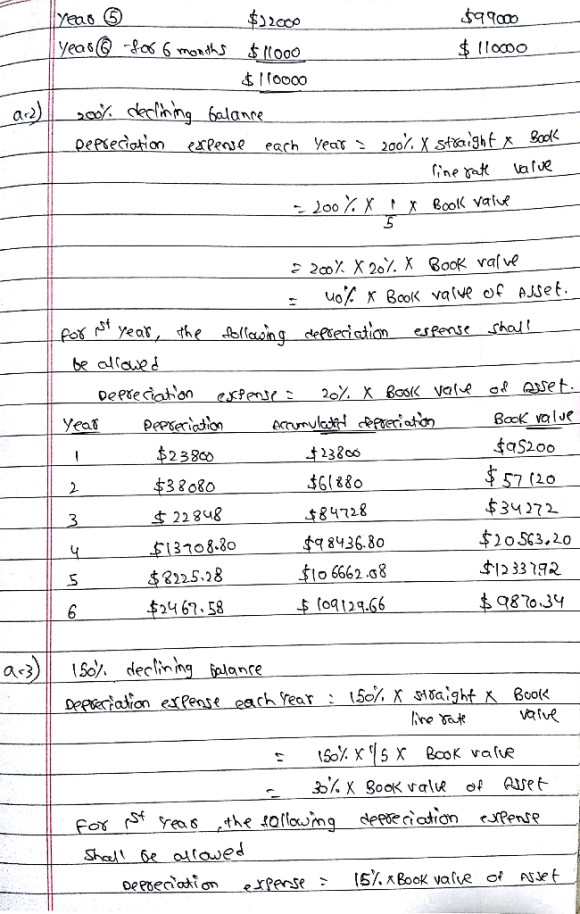 Year ⑤ $22000 $99000
Year ⑥ - for 6 months $11000 $110000
$110000
a-2) 200% declining balance
Depreciation expense each year = 200% X straight x Book
line rate value
= 200% X 1/5 x Book value
= 200% X 20% X Book value
= 40% x Book value of Asset.
For 1st year, the following depreciation expense shall
be allowed
Depreciation expense = 20% X Book value of asset.
Year Depreciation Accumulated depreciation Book value
1 $23800 $23800 $95200
2 $38080 $61880 $57120
3 $22848 $84728 $34272
4 $13708.80 $98436.80 $20563.20
5 $8225.28 $106662.08 $1233792
6 $2467.58 $109129.66 $9870.34
a-3) 150% declining balance
Depreciation expense each year : 150% X straight X Book
line rate value
= 150% X 1/5 X Book value
= 30% X Book value of Asset
For 1st year, the following depreciation expense
shall be allowed
Depreciation expense = 15% x Book value of Asset